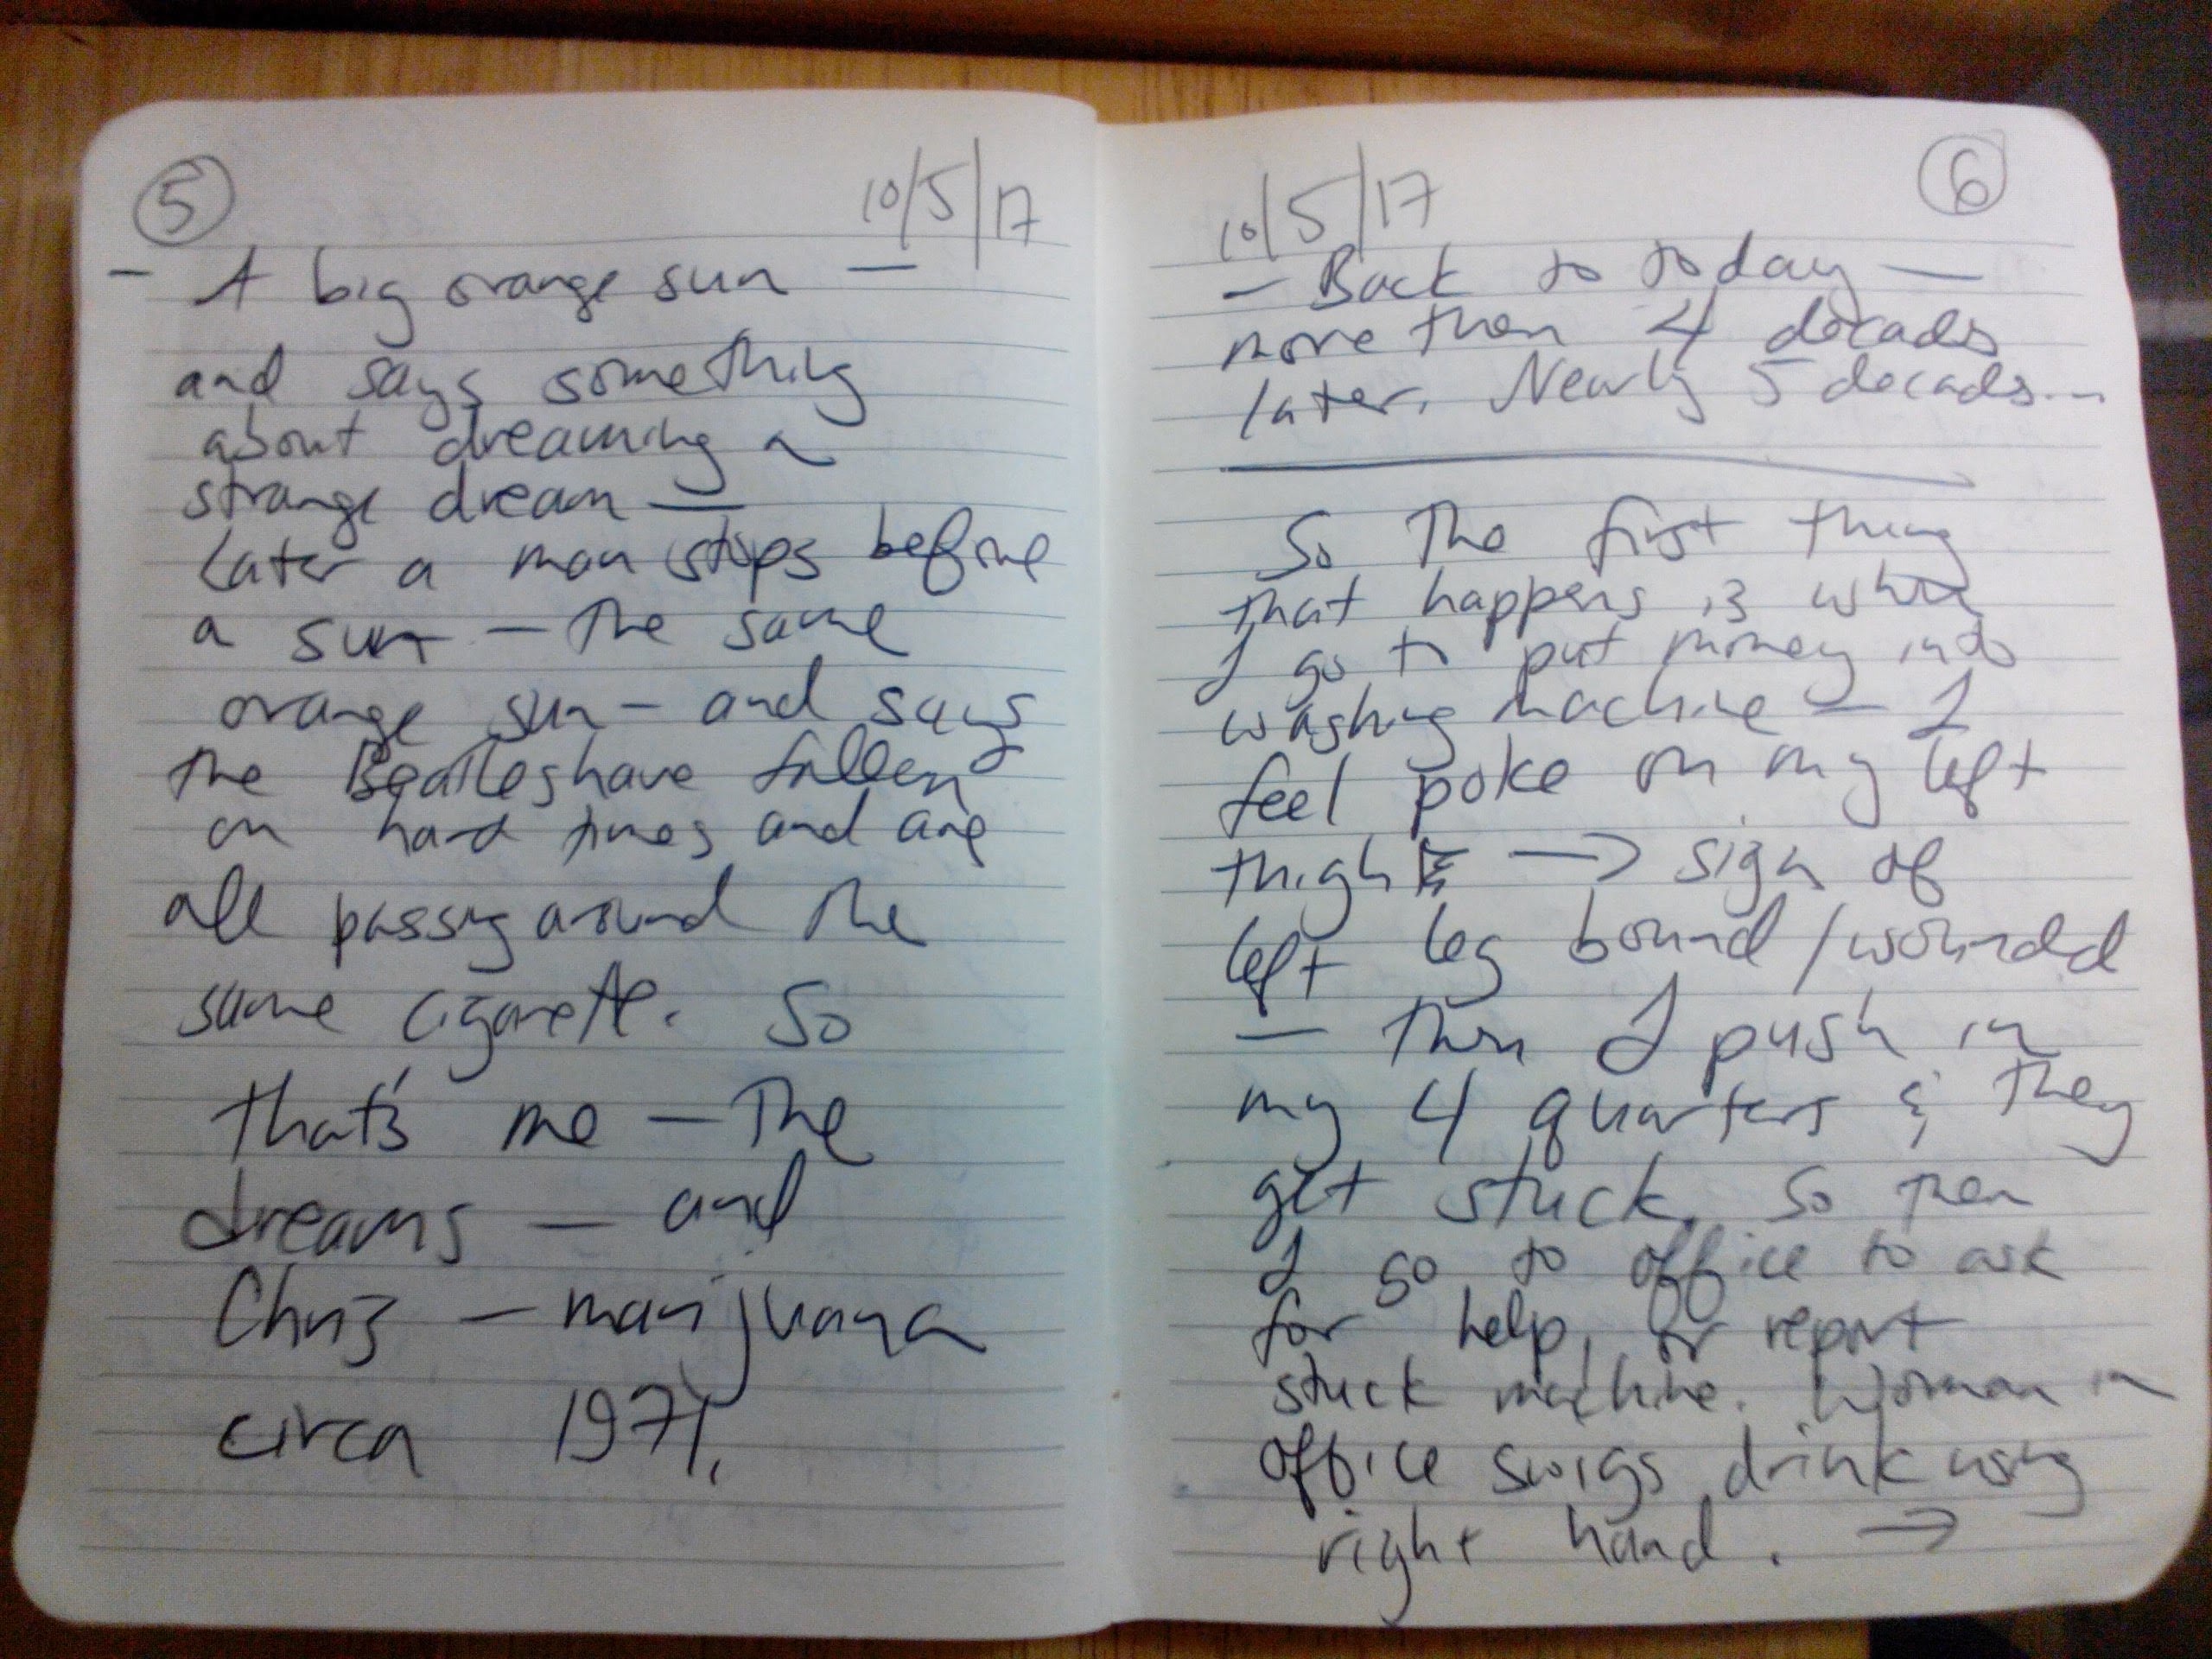 5
10/5/17
– A big orange sun —
and says something
about dreaming a
strange dream —
Later a man stops before
a sun – the same
orange sun – and says
the Beatles have fallen
on hard times and are
all passing around the
same cigarette. So
that's me – The
dreams – and
Chris – marijuana
circa 1971.
6
10/5/17
– Back to today —
more than 4 decads
later. Nearly 5 decads...
So The first thing
that happens is when
I go to put money into
washing machine – I
feel poke on my left
thigh → sign of
left leg bound/woundd
— Then I push in
my 4 quarters & they
get stuck. So then
I go to office to ask
for help, or report
stuck machine. Woman in
office swigs drink using
right hand. →